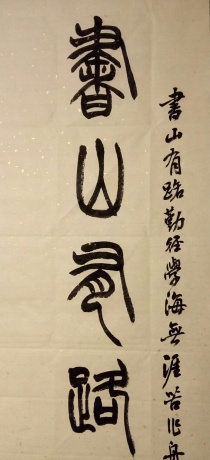 書山有路勤径學海無涯苦作舟
書山有路